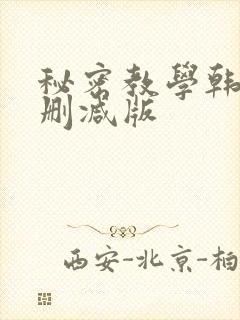 秘密教學韩
删减版
西安-北京-柏